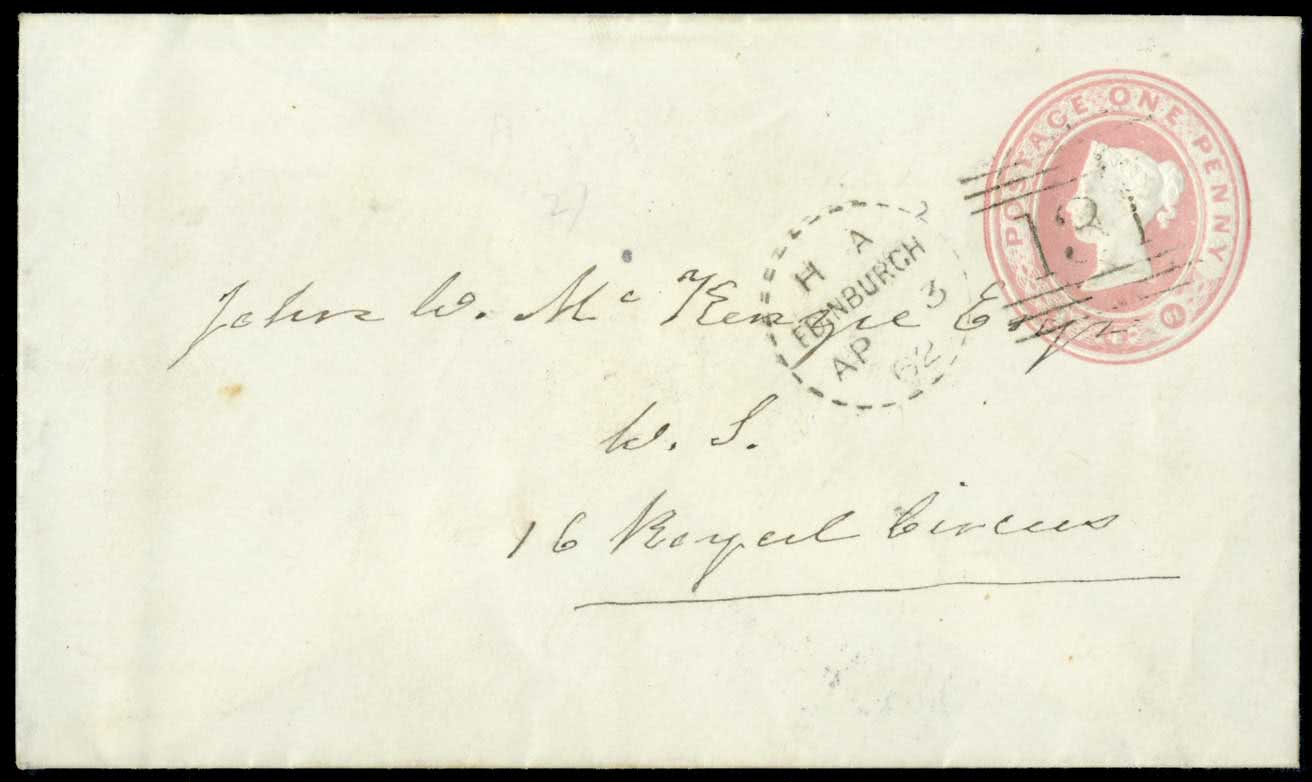 POSTAGE ONE PENNY
131
H A
EDINBURGH
AP 3
62
John W. Mc Kenzie Esqr
W. S.
16 Royal Circus